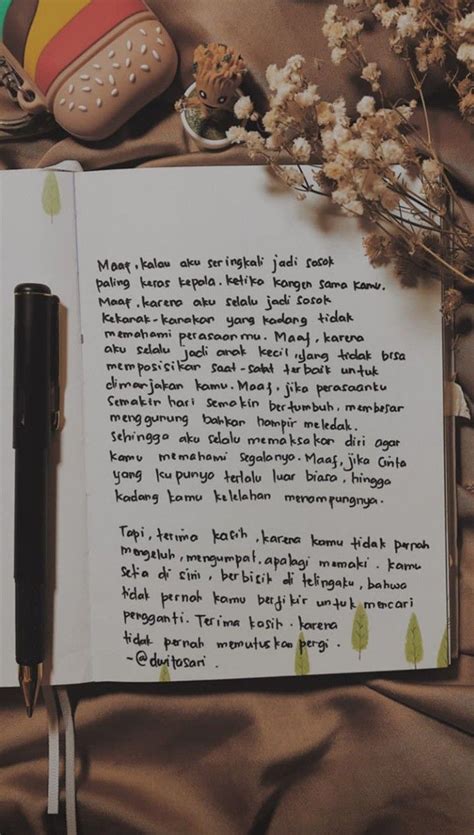 Maaf, kalau aku seringkali jadi sosok
paling keras kepala. ketika kangen sama kamu.
Maaf, karena aku selalu jadi sosok
kekanak-kanakan yang kadang tidak
memahami perasaanmu. Maaf, karena
aku selalu jadi anak kecil, yang tidak bisa
memposisikan saat-saat terbaik untuk
dimanjakan kamu. Maaf, jika perasaanku
semakin hari semakin bertumbuh, membesar
menggunung bahkan hampir meledak.
Sehingga aku selalu memaksakan diri agar
kamu memahami segalanya. Maaf, jika cinta
yang kupunya terlalu luar biasa, hingga
kadang kamu kelelahan menampungnya.
Tapi, terima kasih, karena kamu tidak pernah
mengeluh, mengumpat, apalagi memaki. kamu
setia di sini, berbisik di telingaku, bahwa
tidak pernah kamu berfikir untuk mencari
pengganti. Terima kasih. karena
tidak pernah memutuskan pergi.
-@dwitasari.